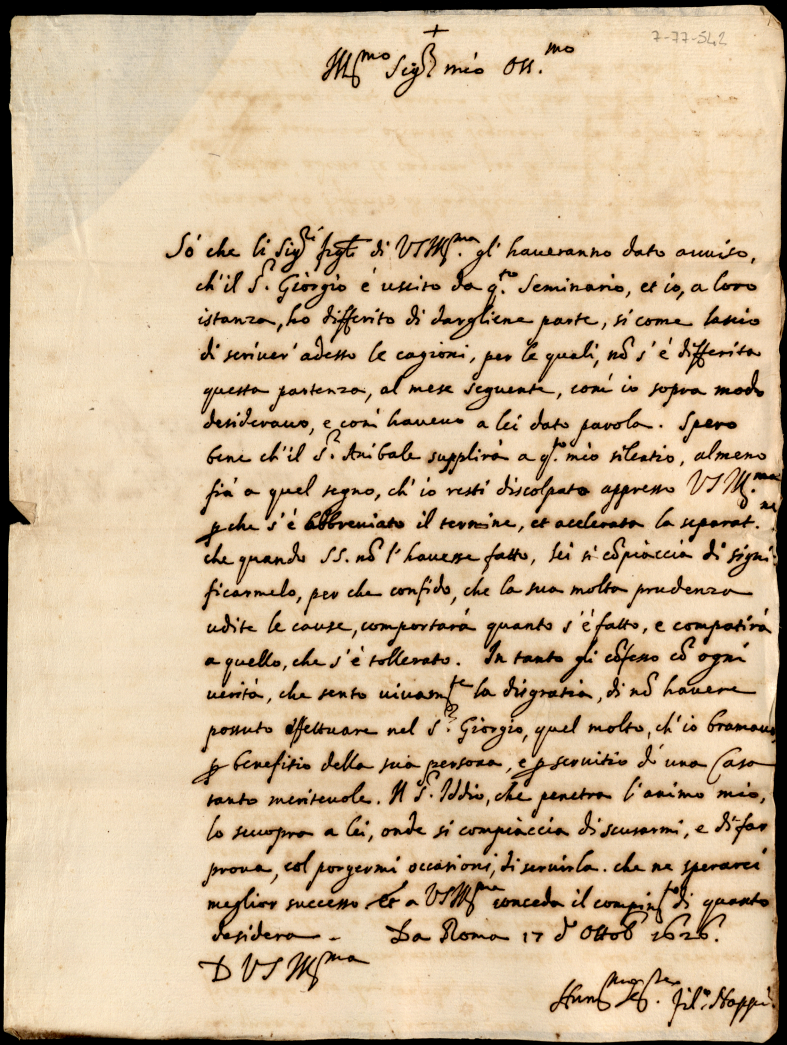 7-77-542
+
Ill.mo Sig.r mio Oss.mo
Sò che li Sig.ri figli di VS Ill.ma gl' haveranno dato auuiso,
ch'il S.r Giorgio è uscito da q.to Seminario, et io, a loro
istanza, ho differito di dargliene parte, si come lascio
di scriver' adesso le cagioni, per le quali, nõ s'è differita
questa partenza, al mese seguente, com' io sopra modo
desiderauo, e com' haueuo a lei dato parola. Spero
bene ch'il S.r Anibale supplirà a q.to mio silentio, almeno
fin a quel segno, ch' io resti discolpato appresso VS Ill.ma
p che s'è abbreuiato il termine, et accelerata la separat.ne
che quando SS. nõ l'hauesse fatto, lei si cõpiaccia di signi-
ficarmelo, per che confido, che la sua molta prudenza
udite le cause, comportarà quanto s'è fatto, e compatirà
a quello, che s'è tollerato. In tanto gli cõfesso cõ ogni
verità, che sento viuam.te la disgratia, di nõ hauere
possuto effettuare nel S.r Giorgio, quel molto, ch' io bramauo
p benefitio della sua persona, e p seruitio di una Casa
tanto meriteuole. Il S.r Iddio, che penetra l'animo mio,
lo scuopra a lei, onde si compiaccia di scusarmi, e di far
proua, col porgermi occasioni, di seruirla. che ne sperarei
meglior successo et a VS Ill.ma conceda il compim.to di quanto
desidera. Da Roma 17 d' Ottob 1626.
D VS Ill.ma
Nappi